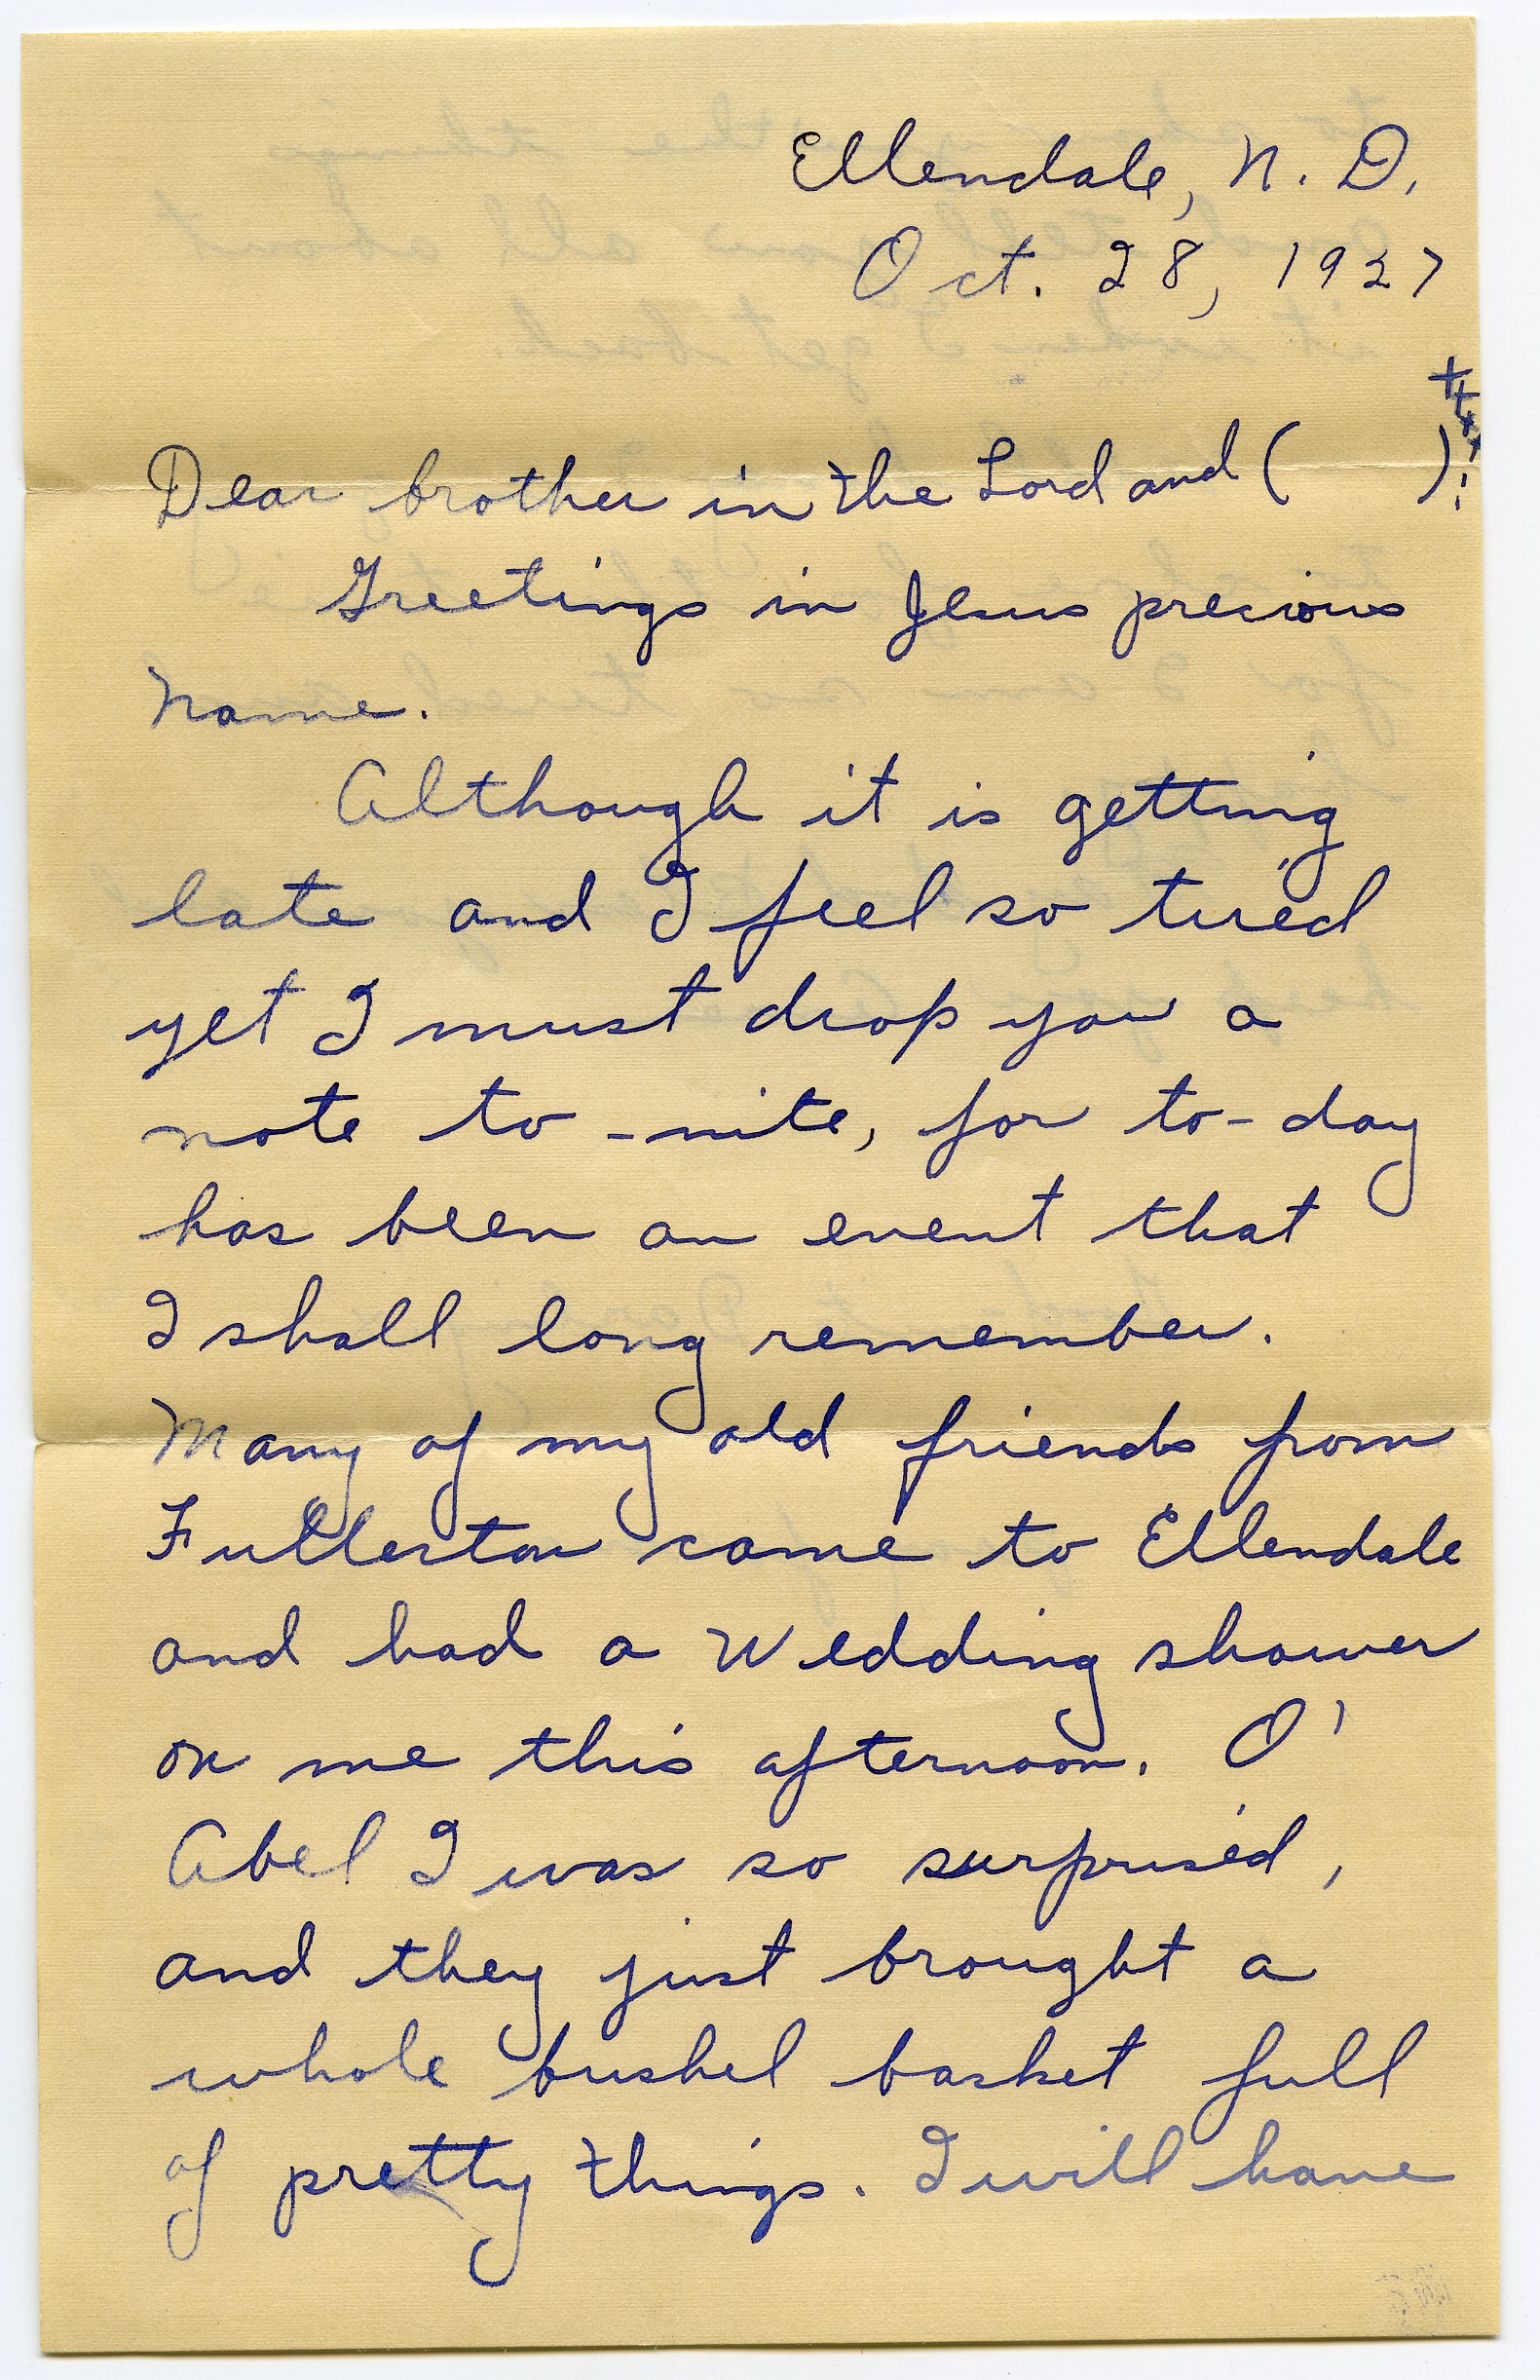 Ellendale, N. D.
Oct. 28, 1927
++xx
Dear brother in the Lord and (      ):
Greetings in Jesus precious
Name.
Although it is getting
late and I feel so tired
yet I must drop you a
note to-nite, for to-day
has been an event that
I shall long remember.
Many of my old friends from
Fullerton came to Ellendale
and had a Wedding shower
on me this afternoon. O'
Abel I was so surprised,
and they just brought a
whole bushel basket full
of pretty things. I will have